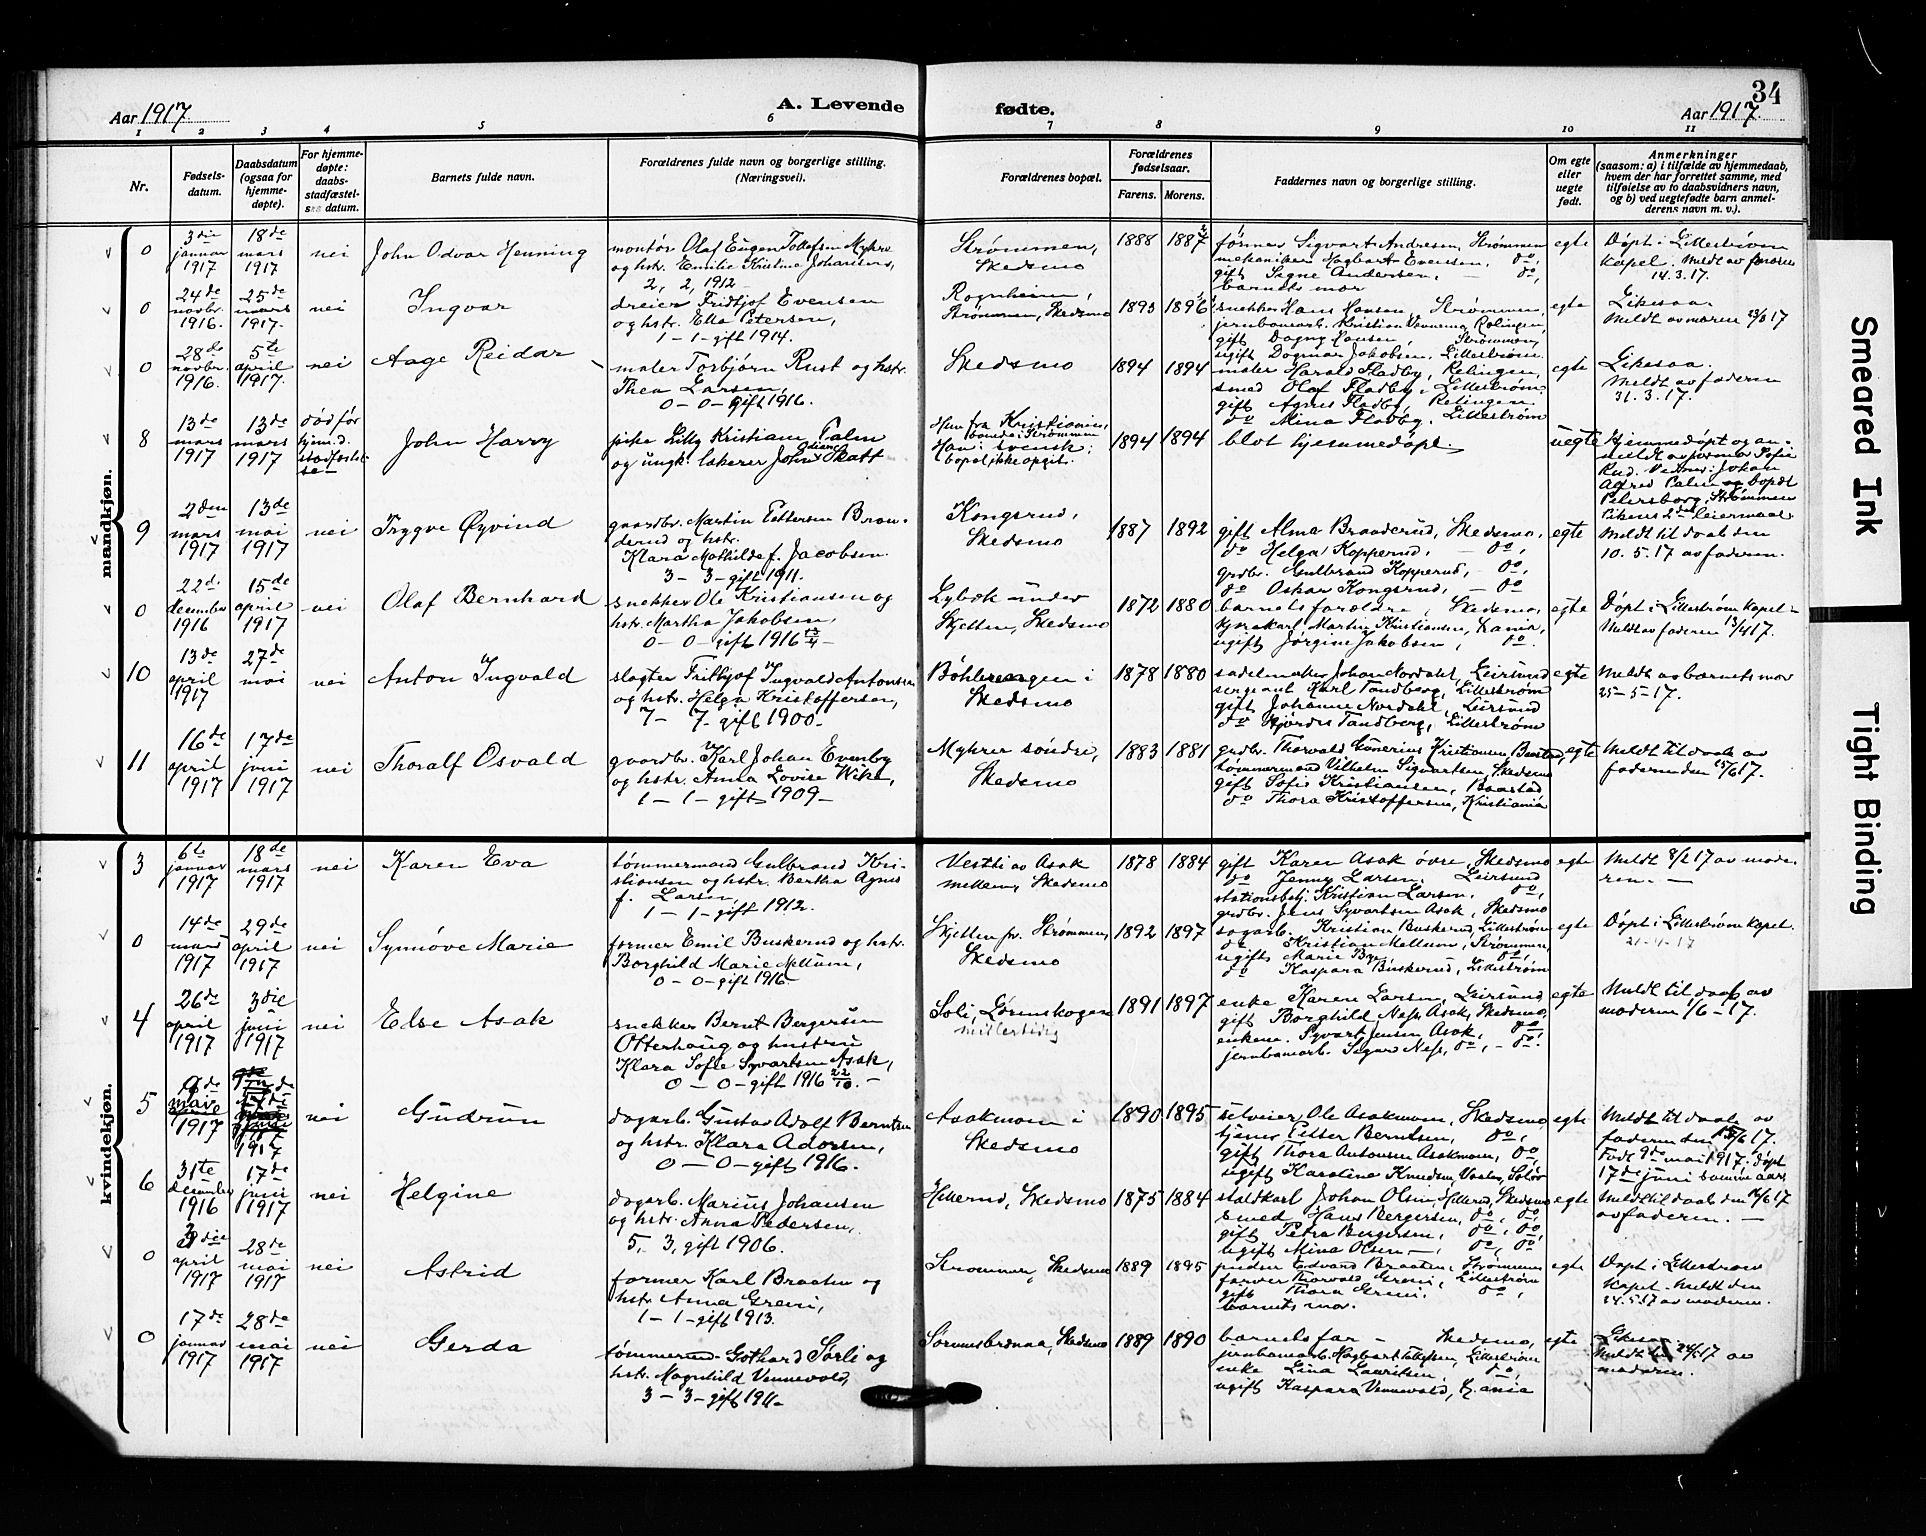 34
Aar 1917.
A. Levende fødte.
Aar 1917.
1 2 3 4 5 6 7 8 9 10 11
Nr.
Fødsels-
datum.
Daabsdatum
(ogsaa for
hjemme-
døpte).
For hjemme-
døpte:
daabs-
stadfæstel-
sens datum.
Barnets fulde navn.
Forældrenes fulde navn og borgerlige stilling.
(Næringsvei).
Forældrenes bopæl.
Forældrenes
fødselsaar.
Farens. Morens.
Faddernes navn og borgerlige stilling.
Om egte
eller
uegte
født.
Anmerkninger
(saasom: a) i tilfælde av hjemmedaab,
hvem der har forrettet samme, med
tilføielse av to daabsvidners navn,
og b) ved uegtefødte barn anmel-
derens navn m. v.).
mandkjøn.
0
3die januar 1917
18de mars 1917
nei
John Odvar Henning
montør Olaf Eugen Tollefsen Myhre
og hstr. Emilie Kristine Johansens,
2, 2, 1912
Strømmen,
Skedsmo
1888 1887
former Sigvart Andresen, Strømmen
mekaniker Hagbart Evensen, do,
gift Signe Andersen, do,
barnets mor
egte
Døpt i Lillestrøm
kapel. Meldt av moren
14.3.17.
0
24de novbr. 1916.
25de mars 1917.
nei
Ingvar
dreier Fridtjof Evensen
og hstr. Ella Petersen,
1-1-gift 1914.
Rognheim,
Strømmen, Skedsmo
1893 1896
snekker Hans Hansen, Strømmen,
jernbanearb. Kristian Vennevold, Rælingen,
gift Dagny Hansen, Strømmen,
ugift Dagmar Jakobsen, Lillestrøm.
egte
Likesaa.
Meldt av moren 23/3 17
0
28de novbr. 1916.
5te april 1917.
nei
Aage Reidar
maler Torbjørn Rust og hstr.
Thea Larsen,
0-0-gift 1916.
Skedsmo
1894 1894
maler Harald Fladby, Relingen,
smed Olaf Fladby, Lillestrøm
gift Agnes Fladby, Relingen
do Mina Fladby, Lillestrøm
egte
Likesaa.
Meldt av faderen
31.3.17.
8
13de mars 1917
13de mars 1917
død før
hjem.d.
stadfæstel-
se
John Harry
pike Lilly Kristiane Palm
og ungk. lakerer John Skatt
Hun fra Kristiania,
boende i Strømmen
Han i svensk;
bopæl ikke opgit.
1894 1894
blot hjemmedøpt
uegte
Hjemmedøpt og an-
meldt av jormor Sofie
Rud. Vidner: Johan
Alfred Palm og Dopdt
Petersborg, Strømmen
Pikens 2det leiermaal.
9
2den mars 1917
13de mai 1917
nei
Trygve Øyvind
gaardbr. Martin Pettersen Bran-
derud og hstr.
Klara Mathilde f. Jacobsen
3-3-gift 1911.
Kongsrud,
Skedsmo
1887 1892
gift Alma Branderud, Skedsmo,
do Helga Kopperud, do,
grdbr. Gulbrand Kopperud, do,
do Oskar Kongsrud, do
egte
Meldt til daab den
10.5.17 av faderen.
0
22d. december 1916
15de april 1917
nei
Olaf Bernhard
snekker Ole Kristiansen og
hstr. Martha Jakobsen,
0-0-gift 1916
Lybæk under
Skjetten, Skedsmo
1872 1880
barnets forældre, Skedsmo,
kjørekarl Martin Kristiansen, X.ania,
ugift Jørgine Jakobsen, do.
egte
Døpt i Lillestrøm kapel-
Meldt av faderen 13/4 17.
10
13de april 1917
27de mai
nei
Anton Ingvald
slagter Fritjof Ingvald Antonsen
og hstr. Helga Kristoffersen,
7-7-gift 1900-
Bøhlerengen i
Skedsmo
1878 1880
sadelmaker Johan Nordahl, Leirsund
sergeant Karl Tandberg, Lillestrøm
gift Johanne Nordahl, Leirsund
do Hjørdis Tandberg, Lillestrøm
egte
Meldt av barnets mor
25-5-17.
11
16de april 1917
17de juni 1917
nei
Thoralf Osvald
gaardbr. Karl Johan Evenby
og hstr. Anna Lovise Wike,
1-1-gift 1909-
Myhrer søndre,
Skedsmo
1883 1881
grdbr. Thorvald Gunerius Kristiansen Baastad,
tømmermand Vilhelm Sigvartsen, Skedsmo
gift Sofie Kristiansen, Baastad
do Thora Kristoffersen, Kristiania
egte
Meldt til daab av
faderen den 15/6 17.
kvindekjøn.
3
6te januar 1917
18de mars 1917
nei
Karen Eva
tømmermand Gulbrand Kri-
stiansen og hstr. Bertha Agnes
f. Larsen,
1-1-gift 1912.
Vestli av Asak
mellem, Skedsmo
1878 1884
gift Karen Asak øvre, Skedsmo
do Jenny Larsen, Leirsund
stationsbetj. Kristian Larsen, do,
grdbr. Jens Syvartsen Asak, Skedsmo
egte
Meldt 8/2 17 av mode-
ren. -
0
14de mars 1917
29de april 1917
nei
Synnøve Marie
former Emil Buskerud og hstr.
Borghild Marie Mellum,
0-0-gift 1916.
Skjetten pr. Strømmen,
Skedsmo
1892 1897
sagarb. Kristian Buskerud, Lillestrøm
do Kristian Mellum, Strømmen,
ugift Marie Bye do,
do Kaspara Buskerud, Lillestrøm
egte
Døpt i Lillestrøm kapel.
21-4-17
4
26de april 1917
3die juni 1917
nei
Else Asak
snekker Bernt Bergersen
Otterhaug og hustru
Klara Sofie Syvartsen Asak,
0-0-gift 1916 22/10.-
Soli, Lørenskogen
midlertidig
1891 1897
enke Karen Larsen, Leirsund
gift Borghild Næss Asak, Skedsmo,
enkem. Syvert Jensen Asak, do,
jernbanearb. Sigurd Ness, do, - do.
egte
Meldt til daab av
moderen 1/6-17.
5
9de mai 1917
17de 1917
nei
Gudrun
dagarb. Gustav Adolf Berntsen
og hstr. Klara Adorsen,
0-0-gift 1916.
Asakmoen i
Skedsmo
1890 1895
selveier Ole Asakmoen, Skedsmo
tjener Petter Berntsen, do,
gift Thora Antonsen Asakmoen, do,
ugift Karoline Knudsen, Vaaler, Solør
egte
Meldt til daab av
faderen den 15/6 17.
Født 9de mai 1917. døpt
17de juni samme aar.
6
31te december 1916
17de juni 1917
nei
Helgine
dagarb. Marius Johansen
og hstr. Anna Pedersen,
5, 3, gift 1906.
Hellerud, Skedsmo
1875 1884
staldkarl Johan Olsen, Hellerud, Skedsmo
smed Hans Bergersen, do, do,
gift Petra Bergersen, do, do,
ugift Mina Olsen, do, do
egte
Meldt til daab den 16/6 17
av faderen. -
0
3die april 1917
28de mai 1917
nei
Astrid
former Karl Braaten og
hstr. Anna Greni,
1-1-gift 1913.
Strømmen, Skedsmo
1889 1895
pudser Edvard Braaten, Strømmen
farver Thorvald Greni, Lillestrøm
gift Thora Greni, do,
barnets mor.
egte
Døpt i Lillestrøm
kapel- Meldt den
24.5.17 av moderen.
0
17de januar 1917
28de mai 1917
nei
Gerda
tømmermd. Gothard Sørli og
hstr. Magnhild Vennevold,
3-3-gift 1911-
Sørumsbrænna, Skedsmo
1889 1890
barnets far - Skedsmo,
jernbanearb. Hagbart Tollefsen, Lillestrøm
enke Lina Lauritsen, do,
ugift Kaspara Vennevold, X.ania
egte
Likesaa
Meldt 24/5 17 av
moderen.
Smeared Ink
Tight Binding